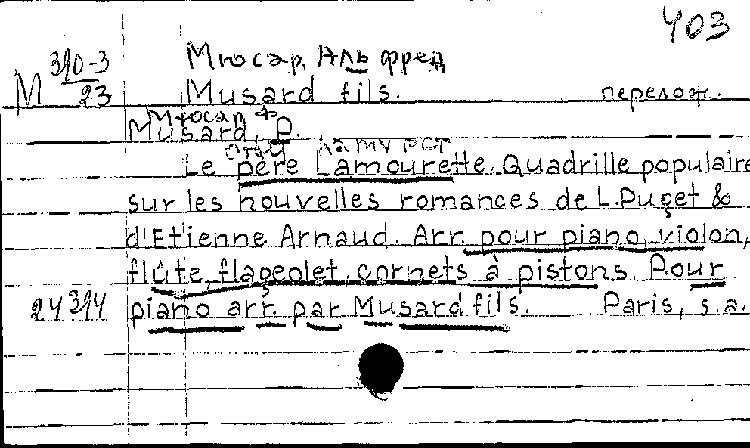 403
М 310-3 Мюсар, Альфред
23 Musard fils. перелож.
Мюсар Ф
Musard, P.
Отец Ламурет
Le père Lamourette. Quadrille populaire
sur les nouvelles romances de L. Puget &
d'Etienne Arnaud. Arr. pour piano, violon,
flûte, flageolet, cornets à pistons. Pour
24314 piano arr. par Musard fils. Paris, s.a.